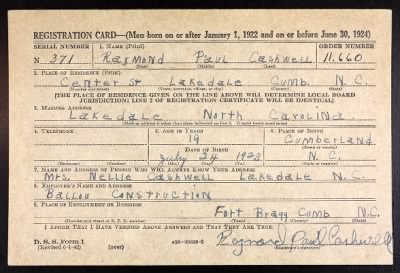 REGISTRATION CARD—(Men born on or after January 1, 1922 and on or before June 30, 1924)
SERIAL NUMBER 1. NAME (Print) ORDER NUMBER
N 371 Raymond Paul Cashwell 11,660
(First) (Middle) (Last)
2. PLACE OF RESIDENCE (Print)
Center St Lakedale Cumb. N.C.
(Number and street) (Town, township, village, or city) (County) (State)
[THE PLACE OF RESIDENCE GIVEN ON THE LINE ABOVE WILL DETERMINE LOCAL BOARD
JURISDICTION; LINE 2 OF REGISTRATION CERTIFICATE WILL BE IDENTICAL]
3. MAILING ADDRESS
Lakedale North Carolina
[Mailing address if other than place indicated on line 2. If same, insert word same]
4. TELEPHONE 5. AGE IN YEARS 6. PLACE OF BIRTH
19 Cumberland
DATE OF BIRTH (Town or county)
July 24 1923 N.C.
(Exchange) (Number) (Mo.) (Day) (Yr.) (State or country)
7. NAME AND ADDRESS OF PERSON WHO WILL ALWAYS KNOW YOUR ADDRESS
Mrs. Nellie Cashwell Lakedale N.C.
8. EMPLOYER'S NAME AND ADDRESS
Ballou Construction
9. PLACE OF EMPLOYMENT OR BUSINESS
Fort Bragg Cumb. N.C.
(Number and street or R. F. D. number) (Town) (County) (State)
I AFFIRM THAT I HAVE VERIFIED ABOVE ANSWERS AND THAT THEY ARE TRUE.
D. S. S. Form 1 Raymond Paul Cashwell
(Revised 6-1-42) (over) (Registrant's signature)